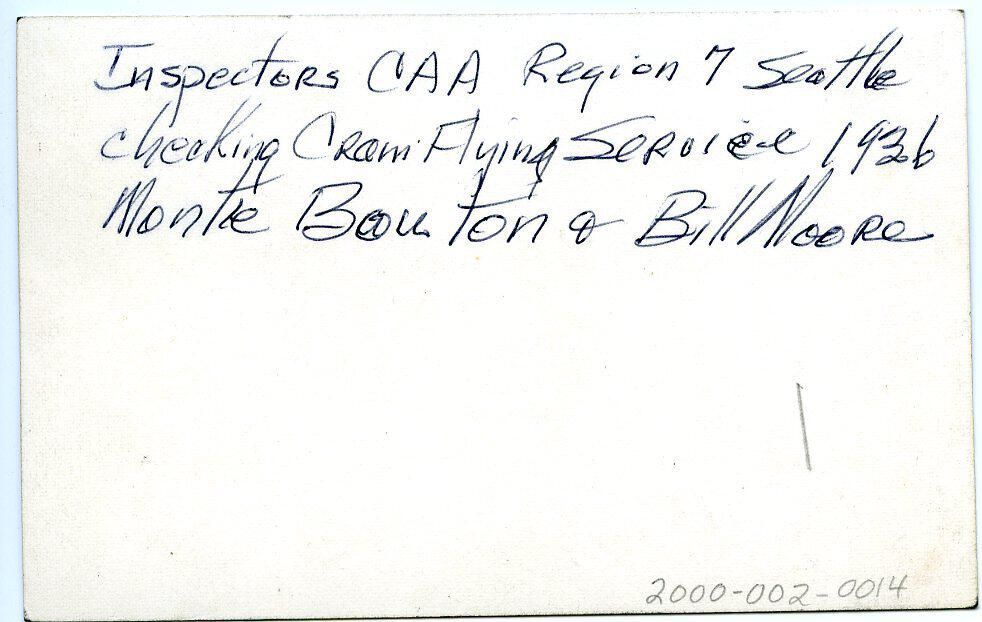 Inspectors CAA Region 7 Seattle
checking Cram Flying Service 1936
Monte Bouton & Bill Moore
2000-002-0014